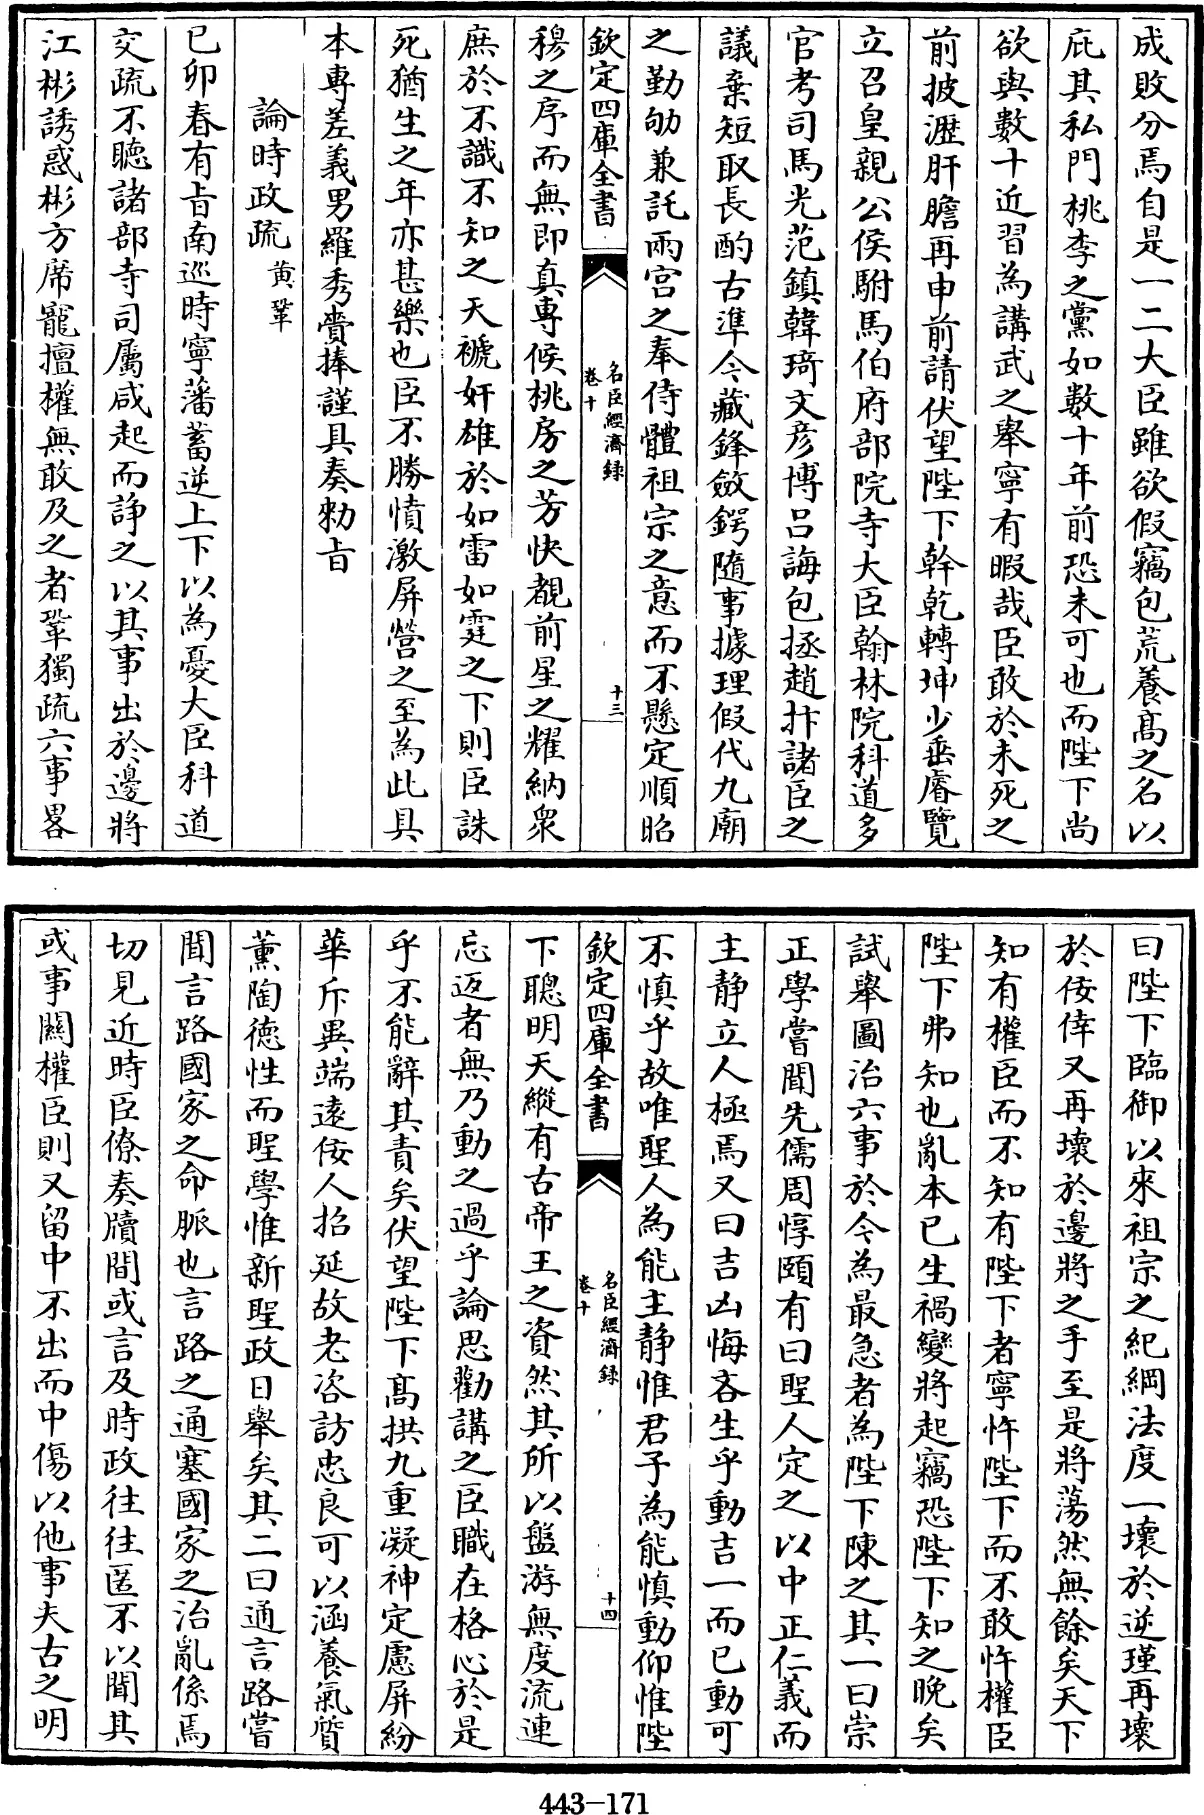 成敗分焉自是一二大臣雖欲假竊包荒養髙之名以
庇其私門桃李之黨如數十年前恐未可也而陛下尚
欲與數十近習為講武之舉寧有暇哉臣敢於未死之
前披瀝肝膽再申前請伏望陛下幹乾轉坤少垂睿覽
立召皇親公侯駙馬伯府部院寺大臣翰林院科道多
官考司馬光范鎮韓琦文彦博吕誨包拯趙抃諸臣之
議棄短取長酌古準今藏鋒斂鍔隨事據理假代九廟
之勤劬兼託兩宫之奉侍體祖宗之意而不懸定順昭
欽定四庫全書
名臣經濟録
卷十
十三
穆之序而無即真専候桃房之芳快覩前星之耀納衆
庶於不識不知之天褫奸雄於如雷如霆之下則臣誅
死猶生之年亦甚樂也臣不勝憤激屏營之至為此具
本専差義男羅秀賫捧謹具奏勅㫖
論時政疏 黄鞏
已卯春有㫖南巡時寧藩蓄逆上下以為憂大臣科道
交疏不聽諸部寺司屬咸起而諍之以其事出於邊將
江彬誘惑彬方席寵擅權無敢及之者鞏獨疏六事畧
曰陛下臨御以來祖宗之紀綱法度一壞於逆瑾再壞
於佞倖又再壞於邊將之手至是將蕩然無餘矣天下
知有權臣而不知有陛下者寧忤陛下而不敢忤權臣
陛下弗知也亂本已生禍變將起竊恐陛下知之晚矣
試舉圖治六事於今為最急者為陛下陳之其一曰崇
正學嘗聞先儒周惇頤有曰聖人定之以中正仁義而
主静立人極焉又曰吉凶悔吝生乎動吉一而已動可
不慎乎故唯聖人為能主静惟君子為能慎動仰惟陛
欽定四庫全書
名臣經濟録
卷十
十四
下聰明天縱有古帝王之資然其所以盤游無度流連
忘返者無乃動之過乎論思勸講之臣職在格心於是
乎不能辭其責矣伏望陛下髙拱九重凝神定慮屏紛
華斥異端遠佞人招延故老咨訪忠良可以涵養氣質
薫陶徳性而聖學惟新聖政日舉矣其二曰通言路嘗
聞言路國家之命脈也言路之通塞國家之治亂係焉
切見近時臣僚奏牘間或言及時政往往匿不以聞其
或事闗權臣則又留中不出而中傷以他事夫古之明
443-171